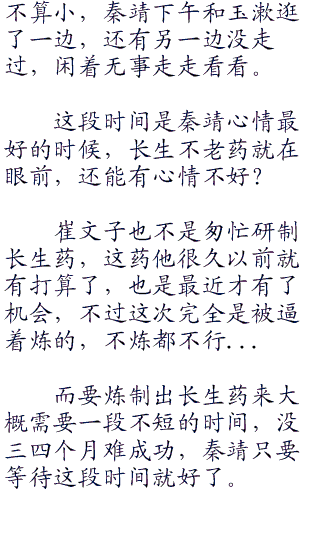 不算小，秦靖下午和玉漱逛
了一边，还有另一边没走
过，闲着无事走走看看。
这段时间是秦靖心情最
好的时候，长生不老药就在
眼前，还能有心情不好？
崔文子也不是匆忙研制
长生药，这药他很久以前就
有打算了，也是最近才有了
机会，不过这次完全是被逼
着炼的，不炼都不行...
而要炼制出长生药来大
概需要一段不短的时间，没
三四个月难成功，秦靖只要
等待这段时间就好了。